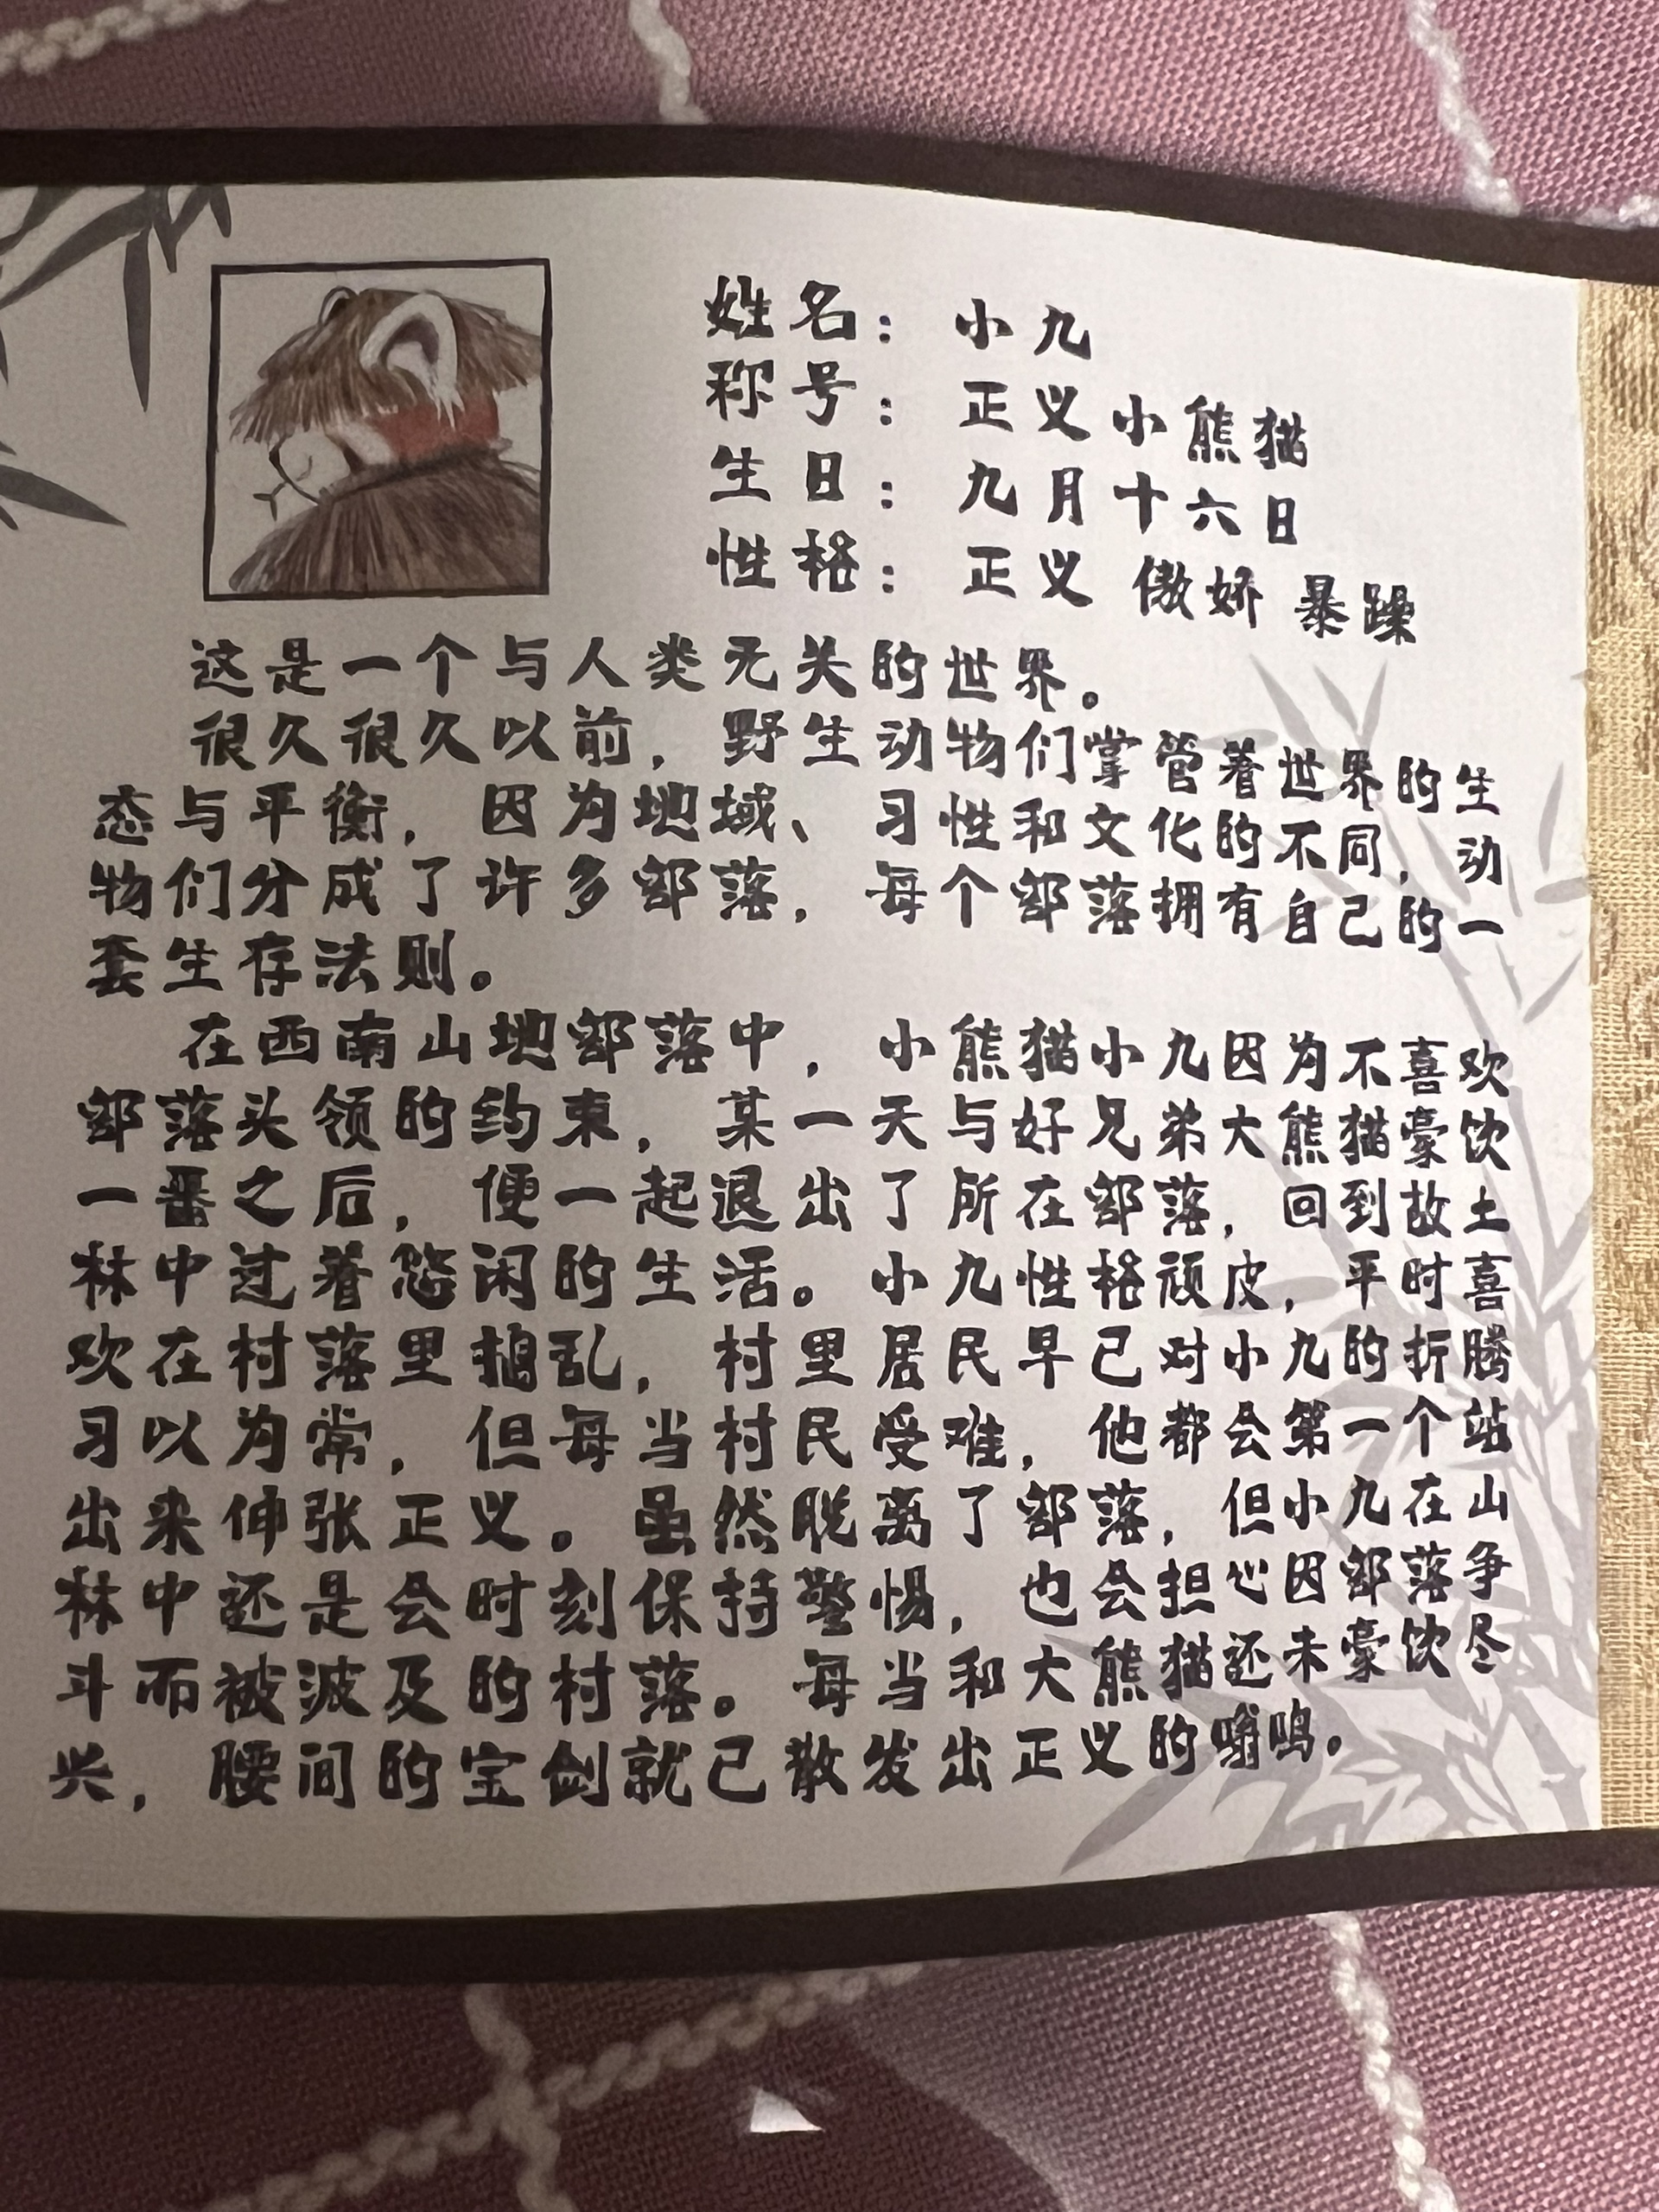 姓名：小九
称号：正义小熊猫
生日：九月十六日
性格：正义 傲娇 暴躁
这是一个与人类无关的世界。
很久很久以前，野生动物们掌管着世界的生
态与平衡，因为地域、习性和文化的不同，动
物们分成了许多部落，每个部落拥有自己的一
套生存法则。
在西南山地部落中，小熊猫小九因为不喜欢
部落头领的约束，某一天与好兄弟大熊猫豪饮
一番之后，便一起退出了所在部落，回到故土
林中过着悠闲的生活。小九性格顽皮，平时喜
欢在村落里捣乱，村里居民早已对小九的折腾
习以为常，但每当村民受难，他都会第一个站
出来伸张正义。虽然脱离了部落，但小九在山
林中还是会时刻保持警惕，也会担心因部落争
斗而被波及的村落。每当和大熊猫还未豪饮尽
兴，腰间的宝剑就已散发出正义的嗡鸣。